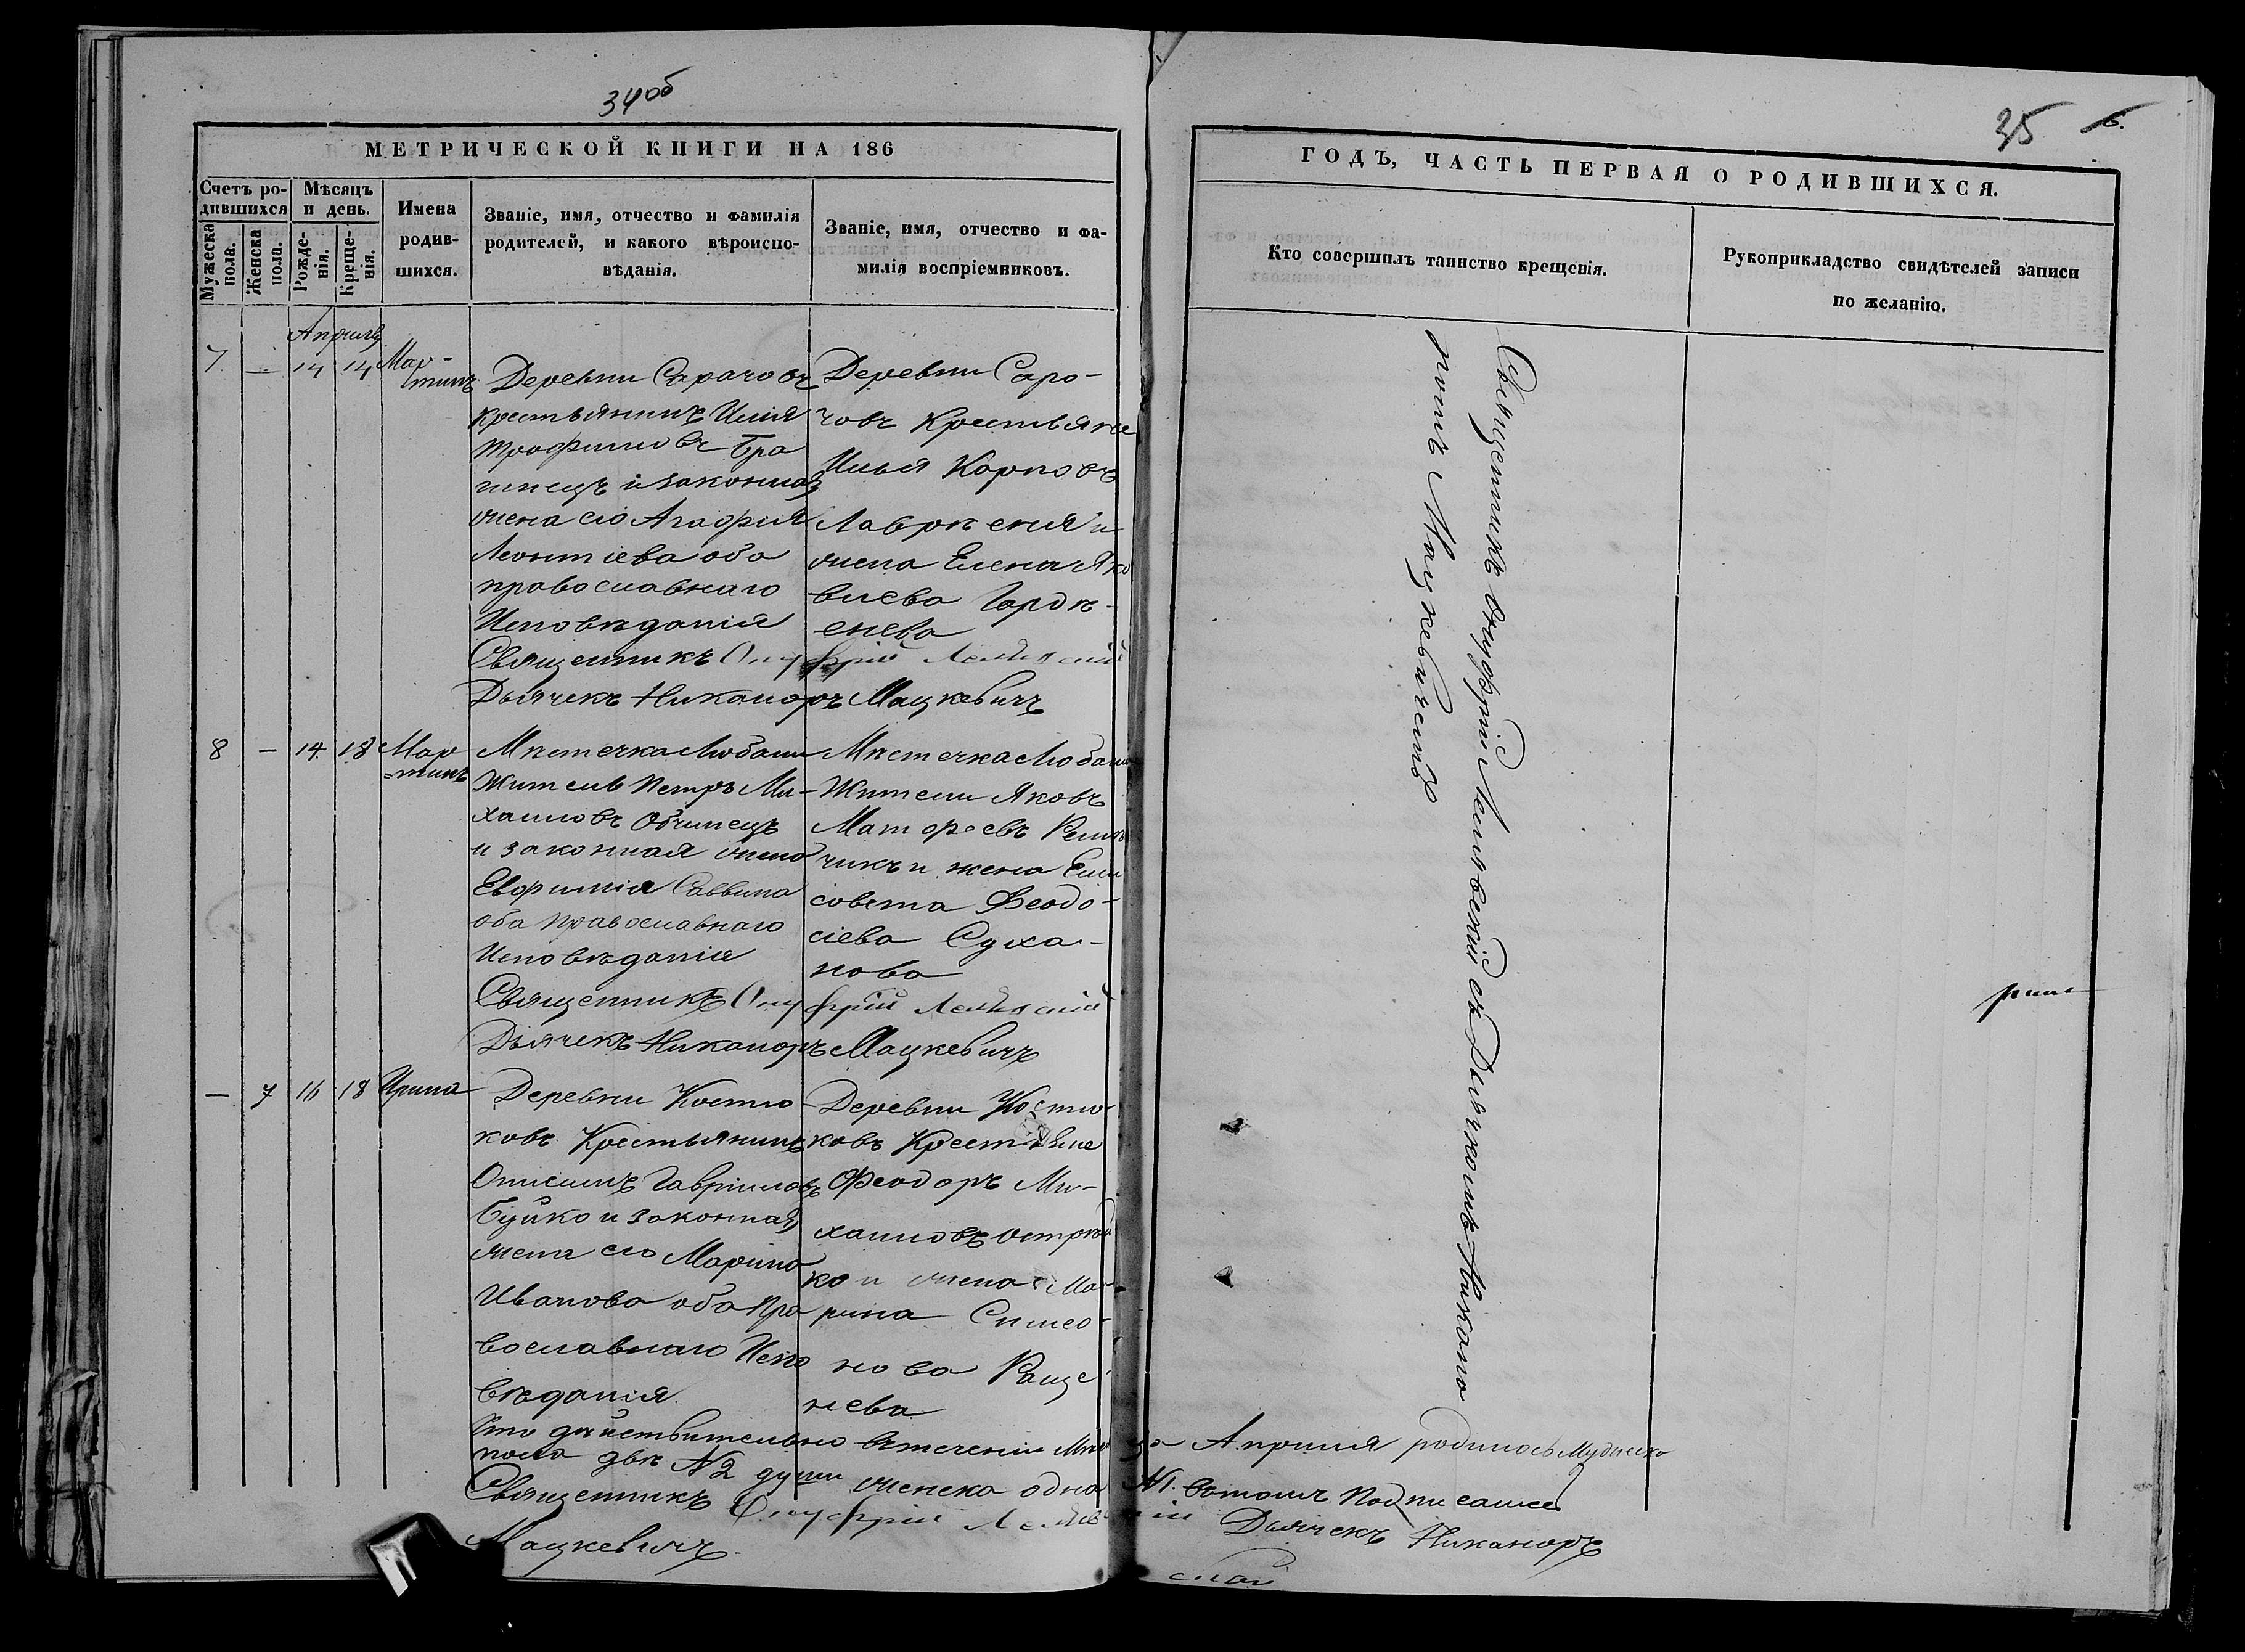 34об
МЕТРИЧЕСКОЙ КНИГИ НА 186
Счетъ ро-
дившихся
Мѣсяцъ
и день.
Мужеска
пола.
Женска
пола.
Рожде-
нія.
Креще-
нія.
Имена
родив-
шихся.
Званіе, имя, отчество и фамилія
родителей, и какого вѣроиспо-
вѣданія.
Званіе, имя, отчество и фа-
милія воспріемниковъ.
Апрѣля
7. — 14 14 Мар-
тинъ
Деревни Сарачовъ
крестьянинъ Илія
Трофимовъ Бра
гинецъ и законная
жена его Агафія
Леонтіева оба
православнаго
Исповѣданія
Деревни Саро-
човъ Крестьяне
Илья Карповъ
и
жена Елена Яко
влева
Священникъ Онуфрій
Дьячекъ Никаноръ Мацкевичъ
8 — 14. 18 Мар
=тинъ
Мѣстечка Любани
Житель Петръ Ми-
хаиловъ
и законная жена
Евфимія Саввина
оба православнаго
Исповѣданія
Мѣстечка Любани
Жители Яковъ
Матфеевъ
чикъ и жена Ели
савета Феодо-
сіева Суха-
нова
Священникъ Онуфрій
Дьячекъ Никаноръ Мацкевичъ
— 7 16 18 Ирина
Деревни Костю-
ковъ Крестьянинъ
Онисимъ Гавріиловъ
Буйко и законная
жена его Марина
Иванова оба пра
вославнаго Испо
вѣданія.
Деревни Костю-
ковъ Крестьяне
Феодоръ Ми-
хаиловъ
ко и жена Ма-
рина Симео-
нова
нева
Что дѣйствительно втеченіи Мѣсяца Апрѣля родилось Мужеска
пола двѣ №2 души женска одна №1. вътомъ подписались
Священникъ Онуфрій Дьячекъ Никаноръ
Мацкевичъ.
35
ГОДЪ, ЧАСТЬ ПЕРВАЯ О РОДИВШИХСЯ.
Кто совершилъ таинство крещенія.
Рукоприкладство свидѣтелей записи
по желанію.
Священникъ Онуфрій съ Дьячкомъ Никано
ромъ Мацкевичемъ